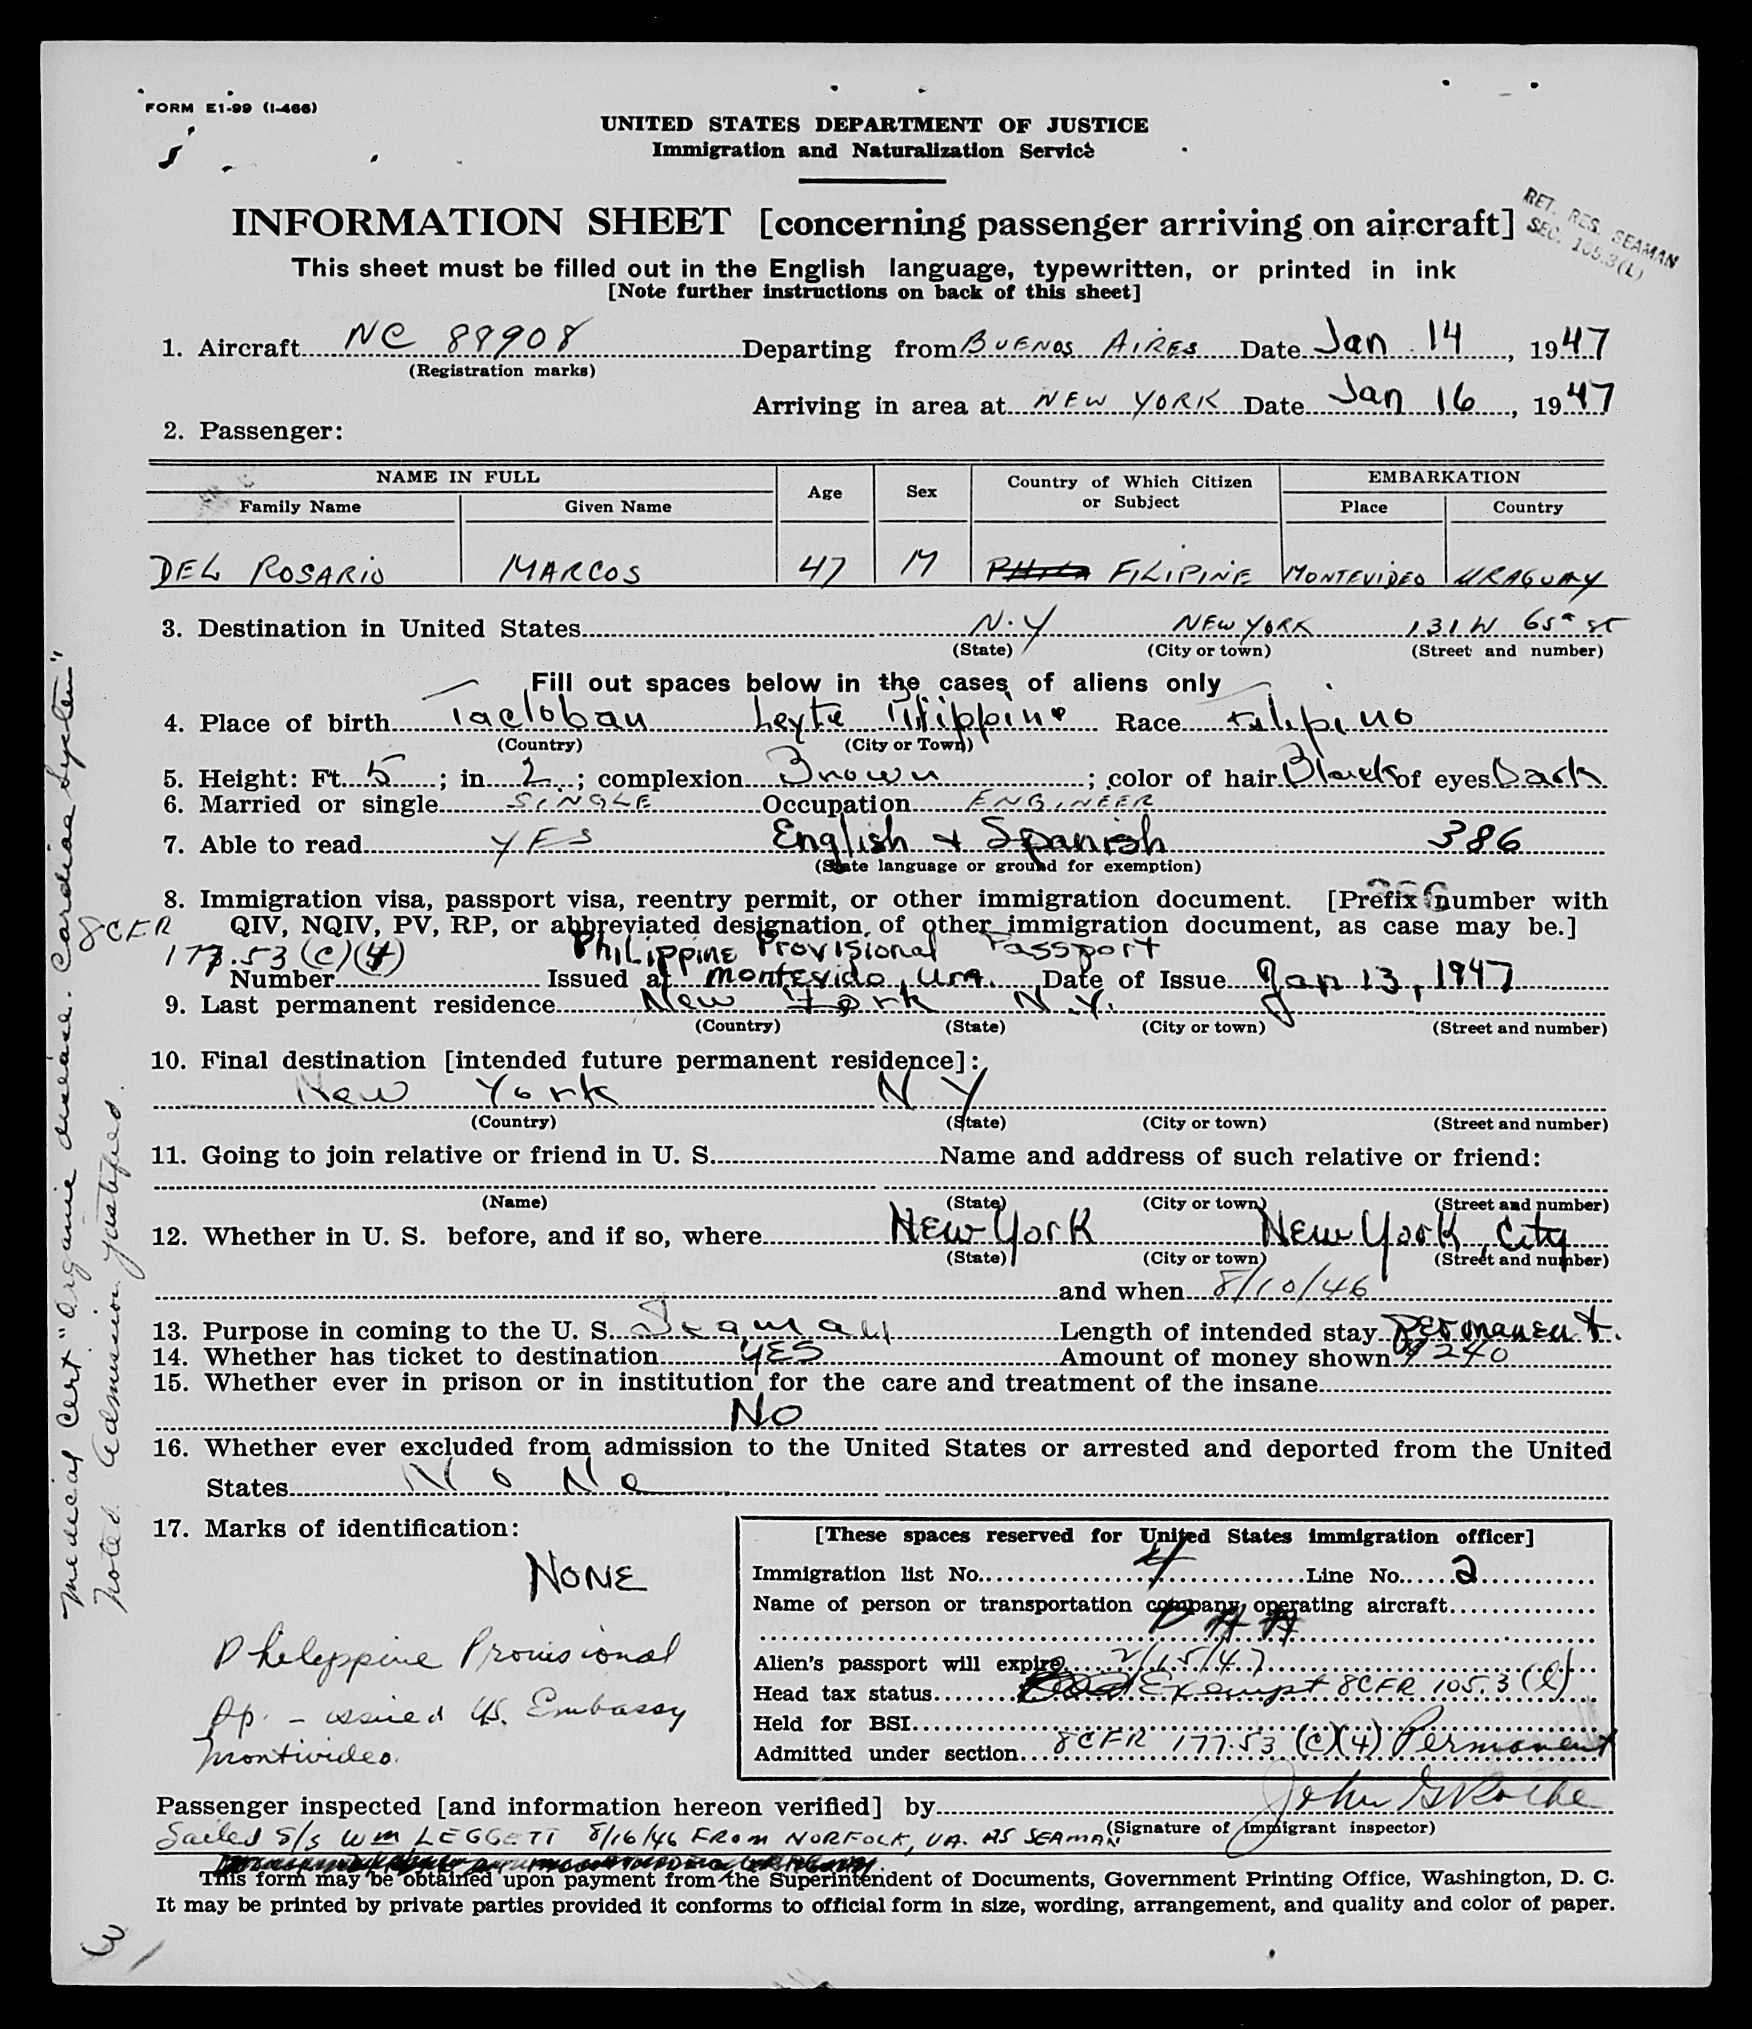 FORM E1-99 (I-466)
UNITED STATES DEPARTMENT OF JUSTICE
Immigration and Naturalization Service
INFORMATION SHEET [concerning passenger arriving on aircraft]
RET. RES. SEAMAN
SEC. 105.3(L)
This sheet must be filled out in the English language, typewritten, or printed in ink
[Note further instructions on back of this sheet]
1. Aircraft NC 88908 Departing from BUENOS AIRES Date Jan 14, 1947
(Registration marks)
Arriving in area at NEW YORK Date Jan 16, 1947
2. Passenger:
NAME IN FULL Age Sex Country of Which Citizen or Subject EMBARKATION
Family Name Given Name Place Country
DEL ROSARIO MARCOS 47 M FILIPINE MONTEVIDEO URAGUAY
3. Destination in United States N.Y NEW YORK 131 W 65 st
(State) (City or town) (Street and number)
Fill out spaces below in the cases of aliens only
4. Place of birth Tacloban Leyte Philippine Race Filipino
(Country) (City or Town)
5. Height: Ft. 5; in. 2; complexion Brown; color of hair Black of eyes Dark
6. Married or single SINGLE Occupation ENGINEER
7. Able to read YES English & Spanish 386
(State language or ground for exemption)
8. Immigration visa, passport visa, reentry permit, or other immigration document. [Prefix number with
8CFR QIV, NQIV, PV, RP, or abbreviated designation of other immigration document, as case may be.]
177.53 (c)(4) Philippine Provisional Passport
Number Issued at Montevido, Ura. Date of Issue Jan 13, 1947
9. Last permanent residence New York N.Y.
(Country) (State) (City or town) (Street and number)
10. Final destination [intended future permanent residence]:
New York N Y
(Country) (State) (City or town) (Street and number)
11. Going to join relative or friend in U. S. Name and address of such relative or friend:
(Name) (State) (City or town) (Street and number)
12. Whether in U. S. before, and if so, where New York New York City
(State) (City or town) (Street and number)
and when 8/10/46
13. Purpose in coming to the U. S. Seaman Length of intended stay Permanent.
14. Whether has ticket to destination YES Amount of money shown $240
15. Whether ever in prison or in institution for the care and treatment of the insane
No
16. Whether ever excluded from admission to the United States or arrested and deported from the United
States None
17. Marks of identification:
NONE
Phileppine Provisional
Pp. - issued US. Embassy
Montivideo.
[These spaces reserved for United States immigration officer]
Immigration list No. 4 Line No. 2
Name of person or transportation company operating aircraft
PAA
Alien's passport will expire 2/15/47
Head tax status Exempt 8CFR 105.3(l)
Held for BSI
Admitted under section 8CFR 177.53 (c)(4) Permanent
Passenger inspected [and information hereon verified] by John G
(Signature of immigrant inspector)
Sailed S/S Wm LEGGETT 8/16/46 FROM NORFOLK, VA. AS SEAMAN
This form may be obtained upon payment from the Superintendent of Documents, Government Printing Office, Washington, D. C.
It may be printed by private parties provided it conforms to official form in size, wording, arrangement, and quality and color of paper.
3
Medical Cert. "Organic disease. Cardiac System"
Noted. Admission justified.